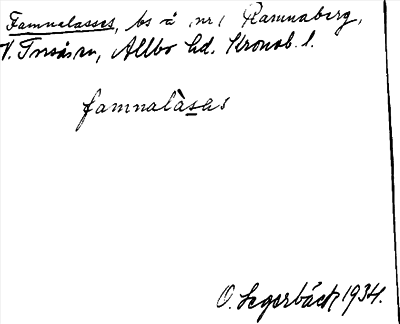 Famnalasses, bs å nr 1 Ramnaberg,
V. Torsås sn, Allbo hd. Kronob. l.
famnalàsas
O. Segerbäck 1934.